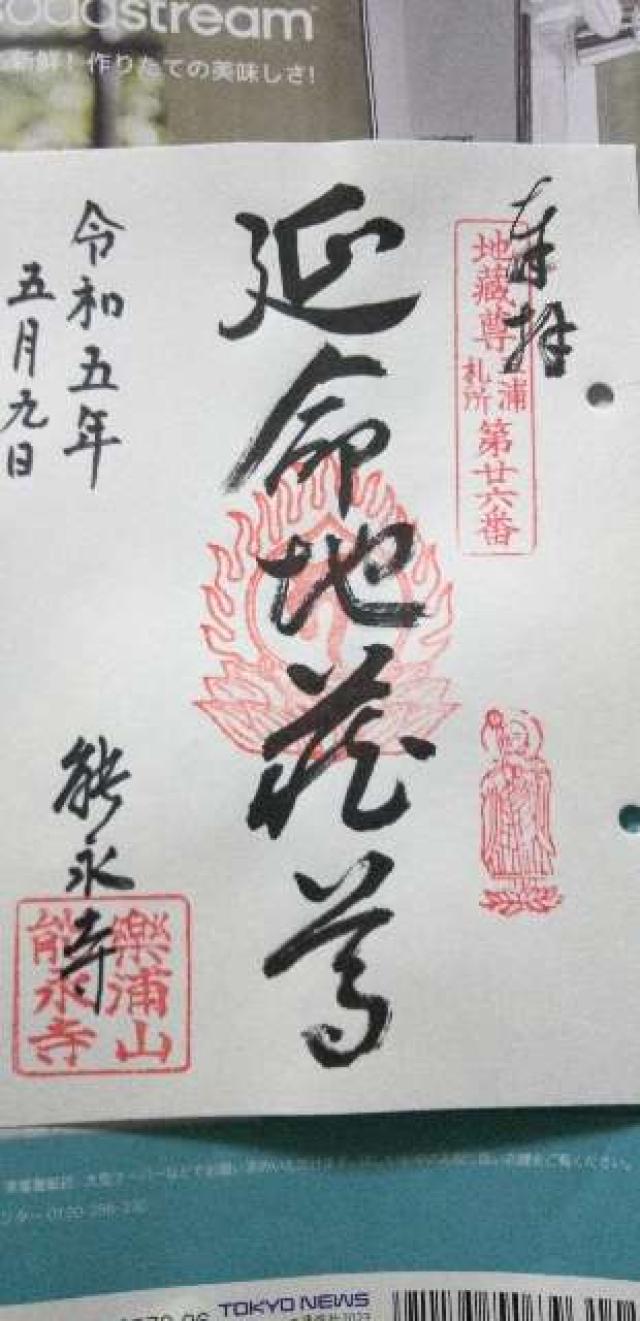 sodastream
新鮮！作りたての美味しさ！
奉拝
地蔵尊
浦
札所
第廿六番
延命地蔵尊
令和五年
五月九日
能永寺
樂浦山
能永寺
TOKYO NEWS